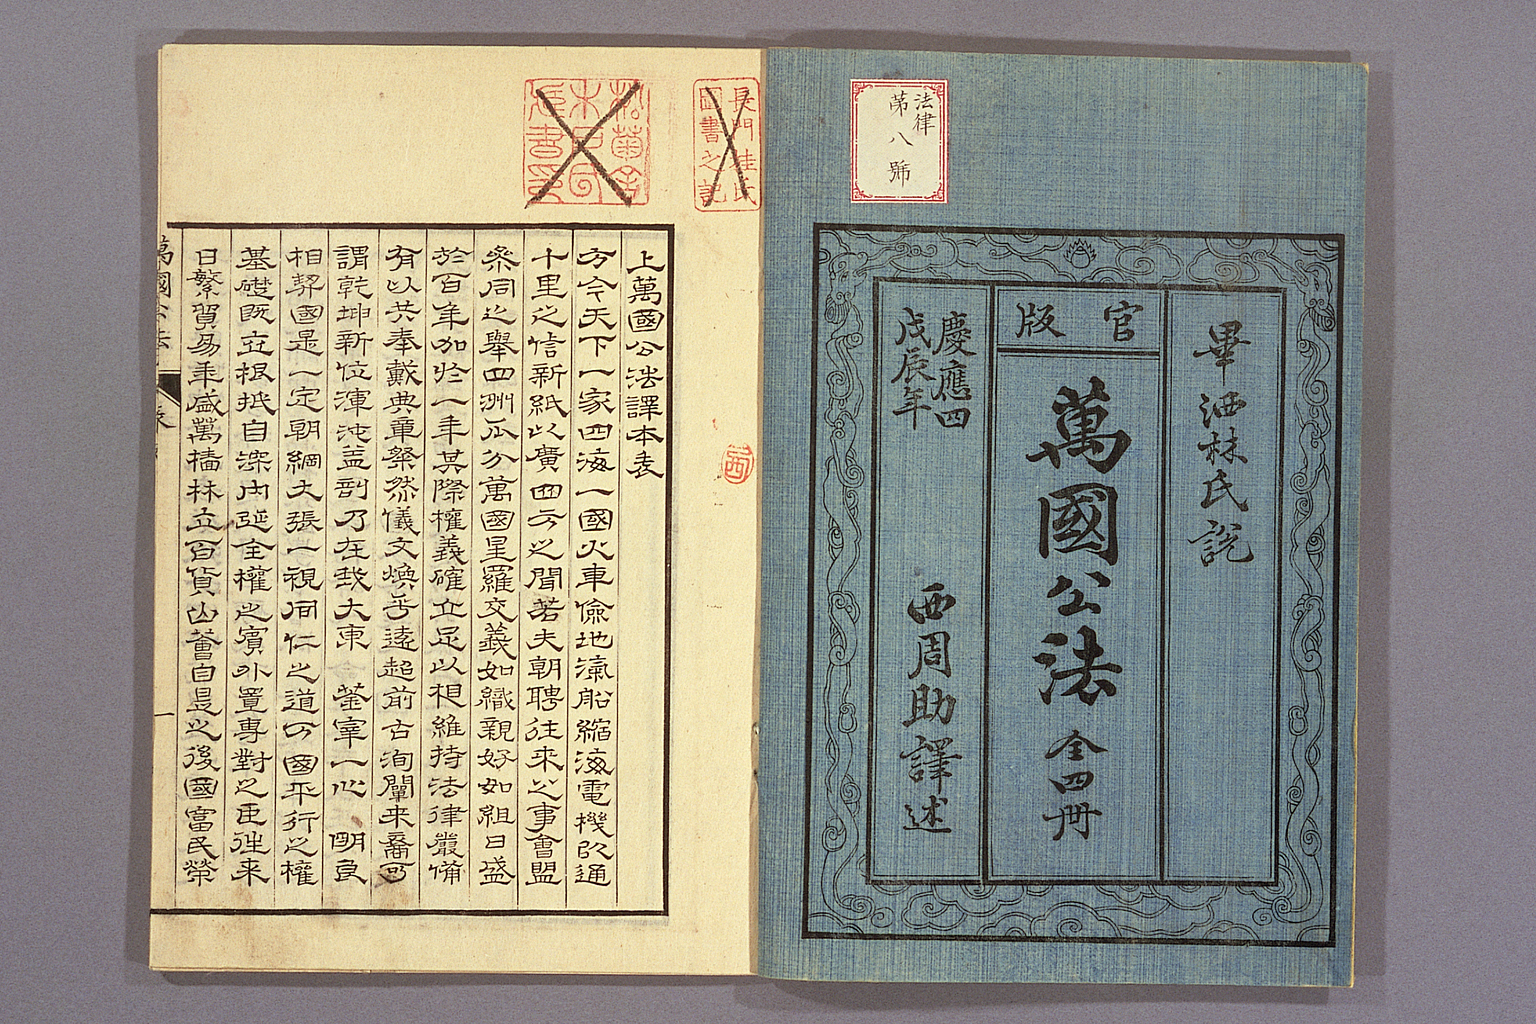 法律
第八號
畢洒林氏說
官版
萬國公法 全四冊
慶應四
戊辰年
西周助譯述
長門桂氏
圖書之記
松菊舍
上萬國公法譯本表
方今天下一家四海一國火車儉地滊船縮海電機以通
十里之信新紙以廣四方之聞若夫朝聘往來之事會盟
粂同之舉四洲瓜分萬國星羅交義如織親好如組日盛
於百年加於一年其際權義確立足以相維持法律嚴備
有以共奉戴典章粲然儀文煥乎遠超前古洵闡來裔可
謂乾坤新位渾沌盖剖乃在我大東 寰宰一心 明良
相契國是一定朝綱大張一視同仁之道方國平行之權
基礎既立根抵自深內延全權之賓外置專對之臣往來
日繁貿易年盛萬檣林立百貨山奮自是之後國富民榮
萬國公法
表
一